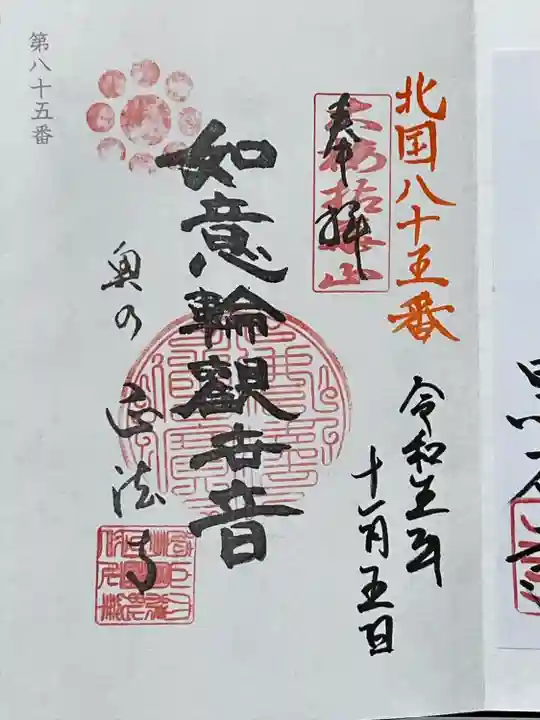 北国八十五番
奉拝
令和五年
十一月五日
如意輪觀世音
奥の正法寺
第八十五番